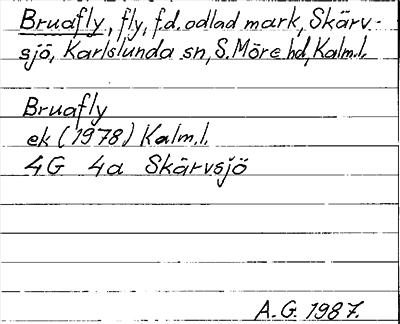 Bruafly, fly, f.d. odlad mark, Skärv-
sjö, Karlslunda sn, S. Möre hd, Kalm.l.
Bruafly
ek (1978) Kalm.l.
4G 4a Skärvsjö
A.G. 1987.